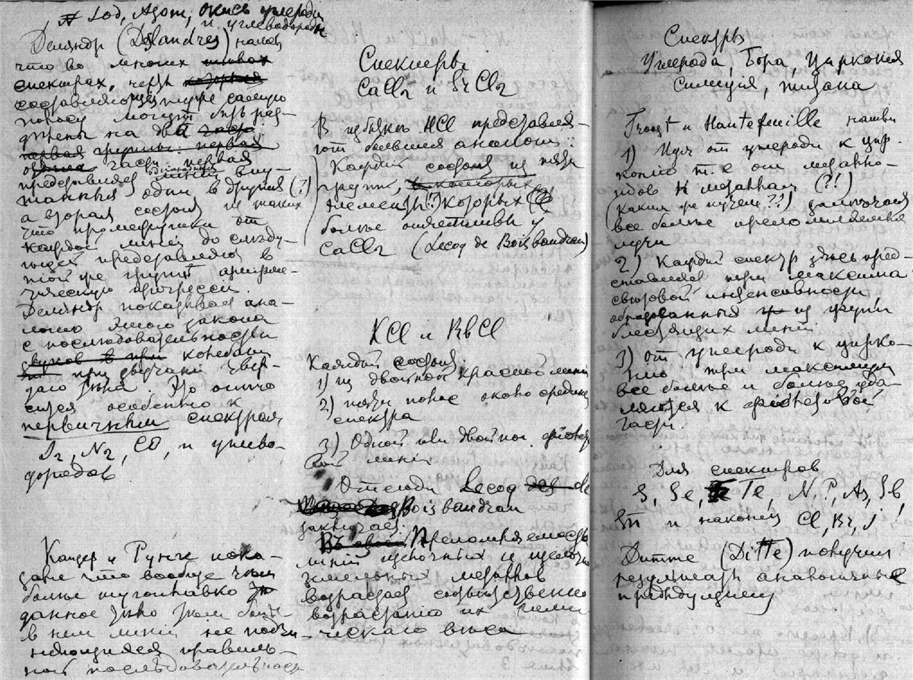 Іод, Азот, окись углерода
и углеводороды
Деляндр (Deslandres) нашел
что во многих
спектрах, черты
составляющие ту же самую
полосу могут быть раз-
делены на два
первая группы: первая
части: первая
представляет линии
одни в других (?)
а вторая состоит из таких
что промежутки от
каждой линии до следу-
ющей представляются в
той же группе арифме-
тическую прогрессию.
Деляндр показывает ана-
логию этого закона
с последовательностью
звуков в при колебани-
при звучании твер-
даго тела. Это отно-
сится особенно к
первичным спектрам
J2, N2, CO, и углево-
дородов
Кайзер и Рунге пока-
зали что вообще чем
более тугоплавко
данное тело тем более
в нем линий не подчи-
няющихся правиль-
ной последовательности
Спектры
CaCl2 и SrCl2
В избытке HCl представля-
ют большия аналогии:
Каждый состоит из пяти
групп, которых
элементы (?) которых
более отчетливы у
CaCl2 (Lecoq de Boisbaudran)
KCl и RbCl
Каждый состоит:
1) из двойной красной линии
2) пяти полос около средины
спектра
3) Одной или двойной фиолето-
вой линии
Отсюда Lecoq de
Boisbaudran
заключает:
Преломляемость
линий щелочных и щелочно
земельных металлов
возрастает соответственно
возрастанию их хими-
ческаго веса
Спектры
Углерода, Бора, Циркония
Силиция, титана
Troost и Hautefeuille нашли
1) Идя от углерода к цир-
конию т.е. от металло-
идов к металлам (?!)
(каким же путем??) замечаем
все более преломляемые
лучи
2) Каждый спектр здесь пред-
ставляет три максима
световой интенсивности
образованных из групп
блестящих линий
3) от углерода к цирко-
нию три максимума
все более и более уда-
ляются к фиолетовой
части.
Для спектров
S, Se, Te, N, P, As, Sb,
Sn и наконец Cl, Br, J
Дитте (Ditte) получил
результаты аналогичные
предыдущему